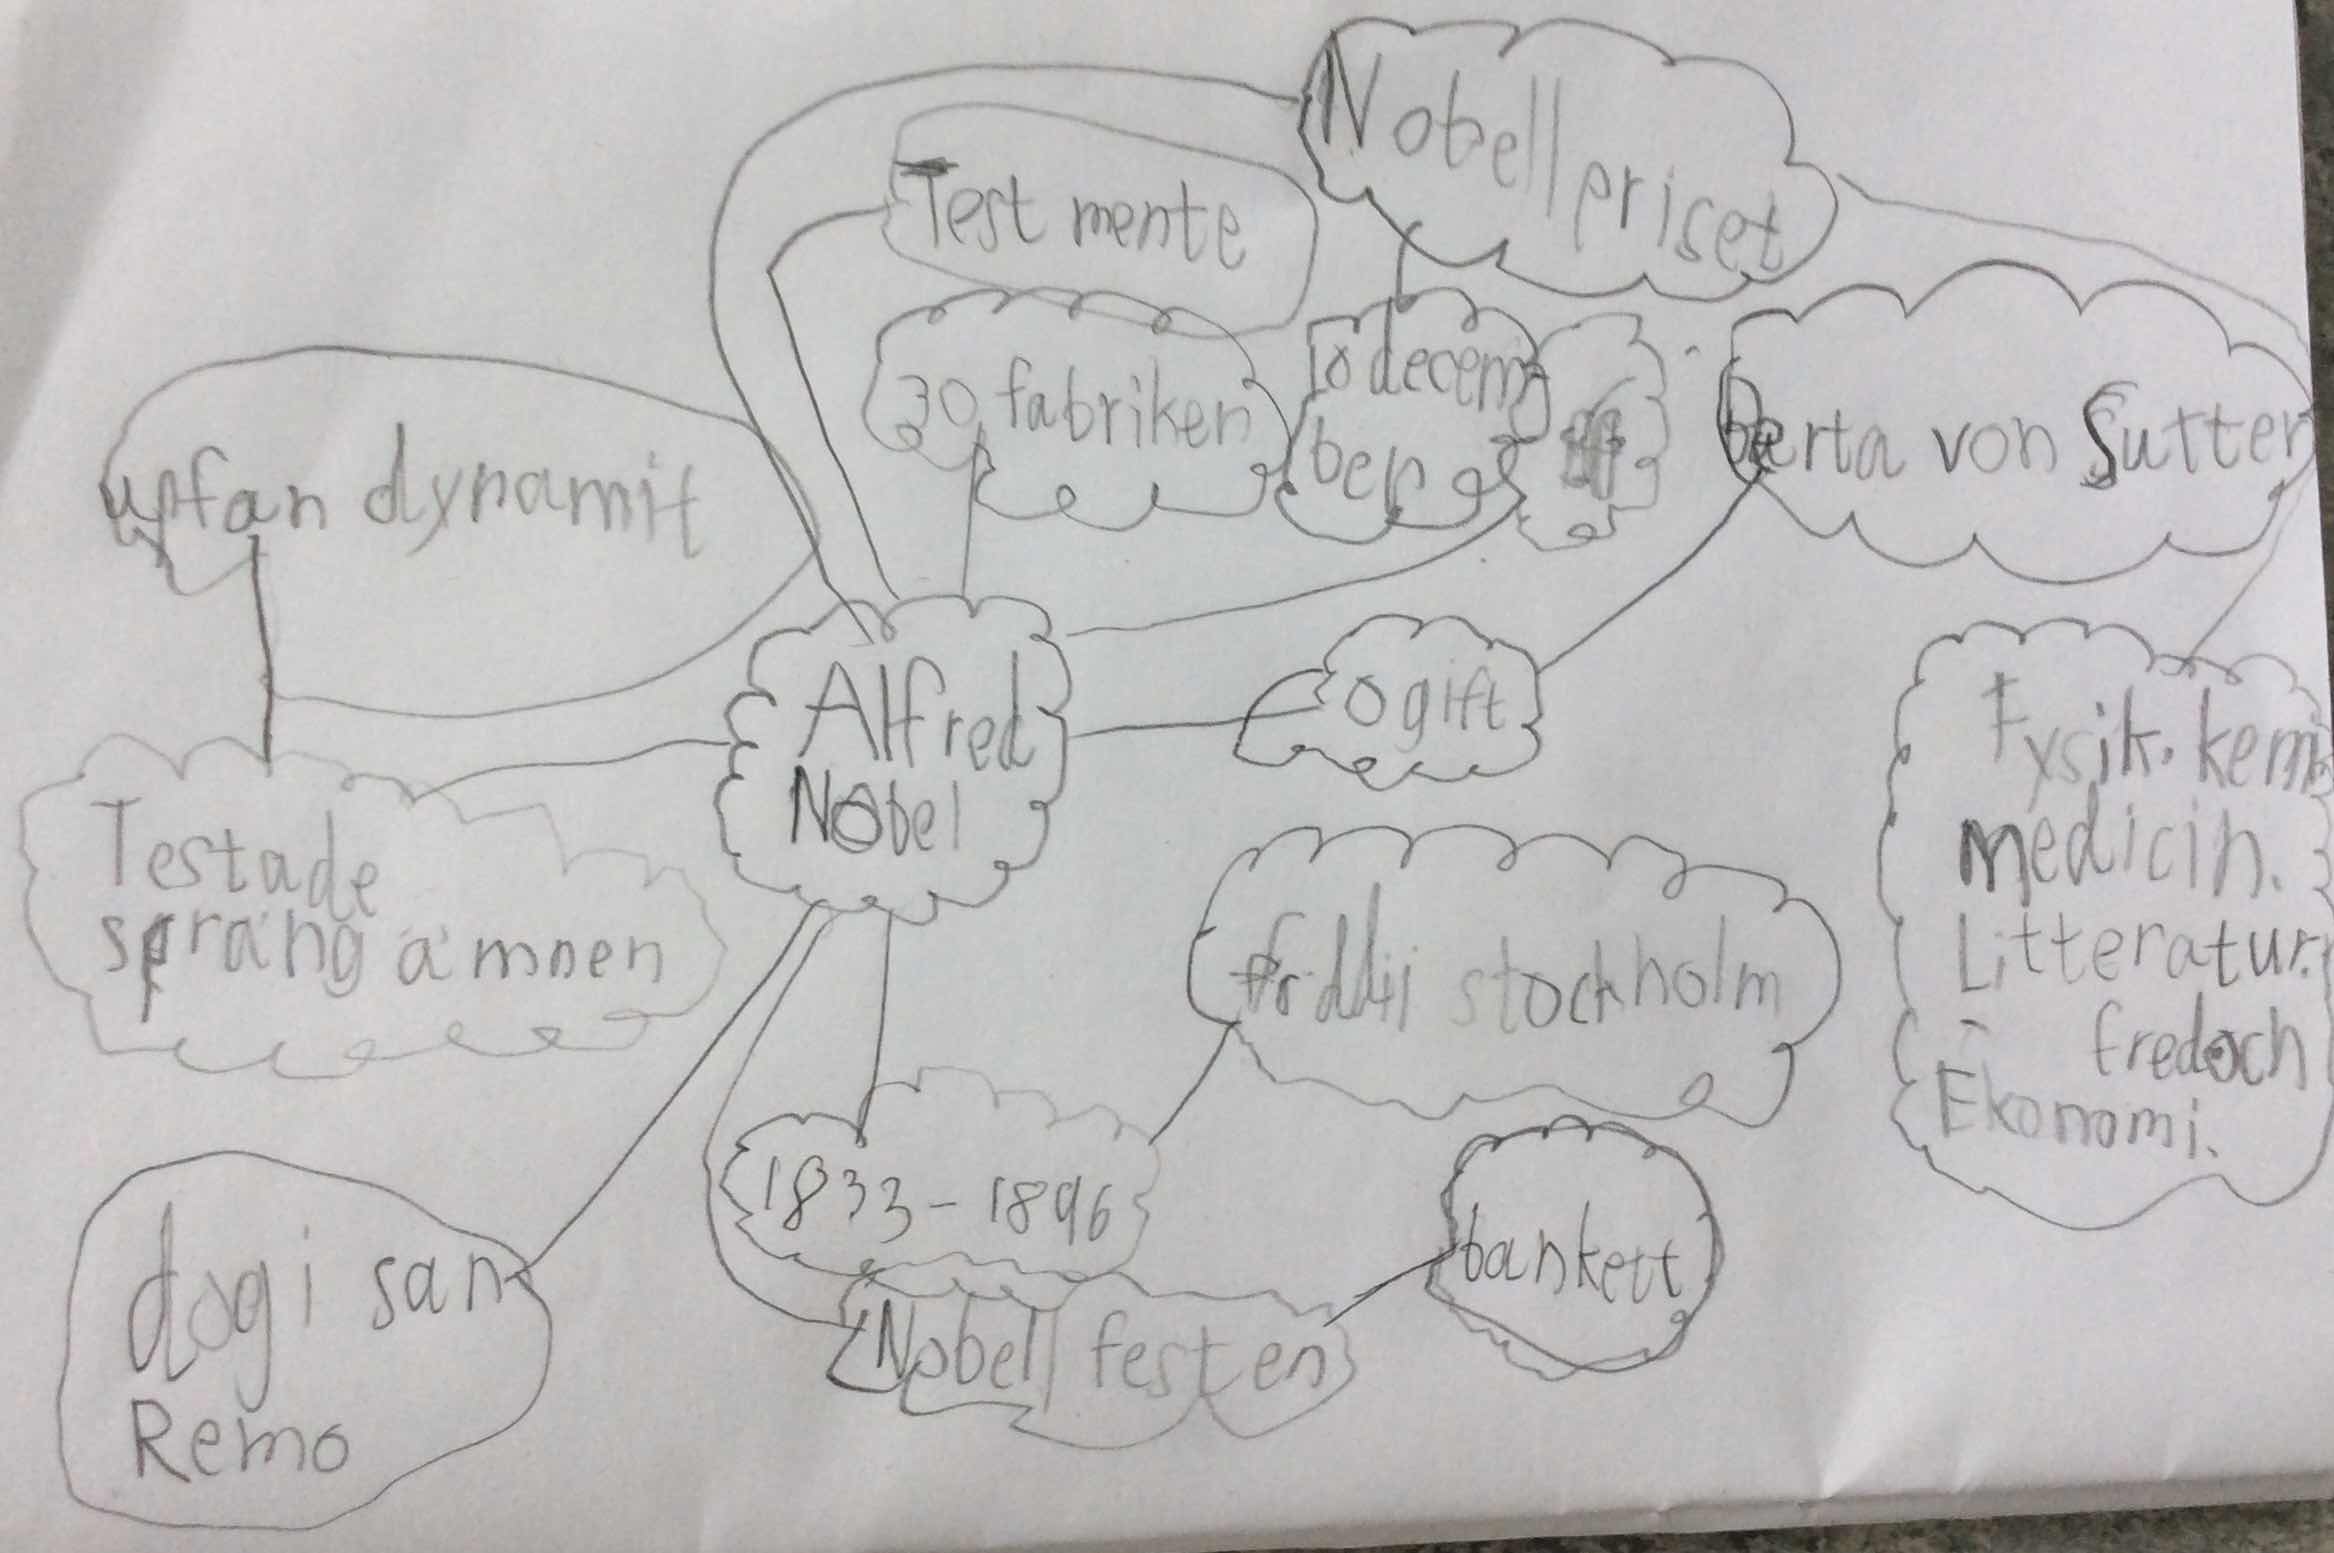 Nobellpriset
Test mente
30 fabriken
10 decem
ber
berta von Sutter
upfan dynamit
Alfred
Nobel
ogift
Fysik. kemi
medicin.
Litteratur.
fred och
Ekonomi.
Testade
spräng ämnen
stockholm
1833-1896
dog i san
Remo
bankett
Nobell festen